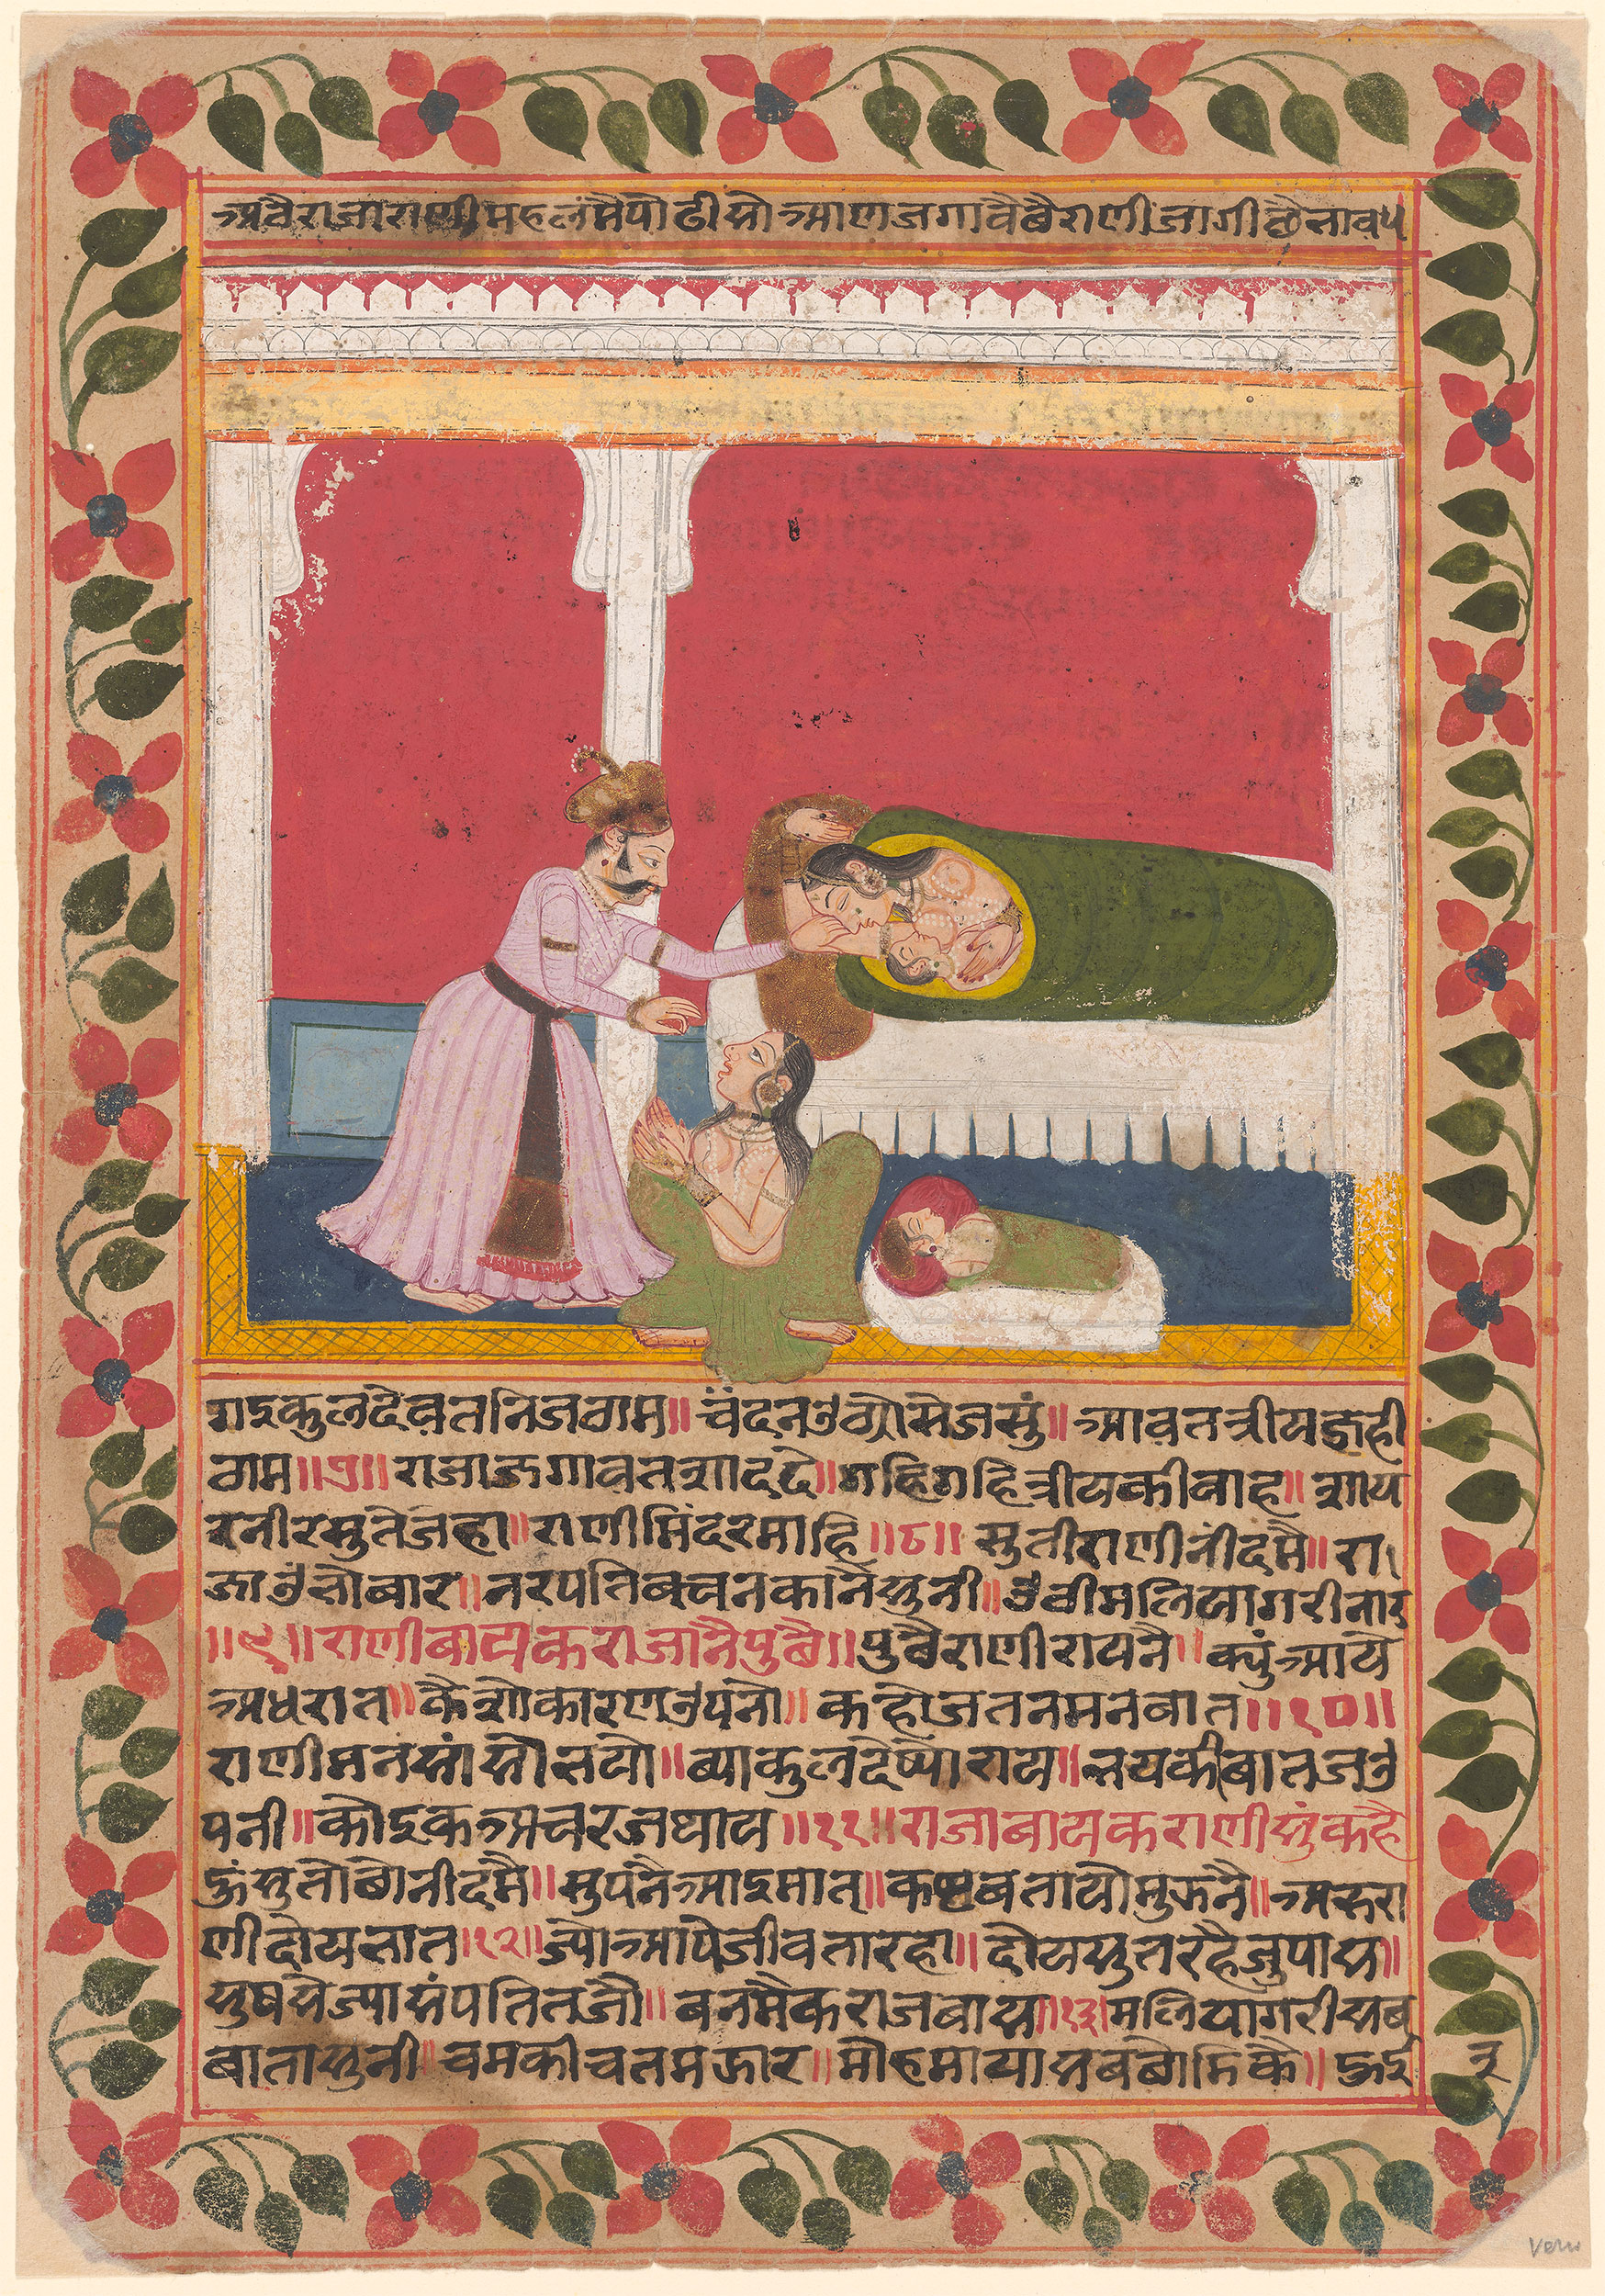 अबैराजाराणीमहलमैपोढीसोआणजगावैबैराणीजागीछैनावप
राइकुलदेवतनिजठाम॥ चंदनउठ्योसेजसुं॥ आवतत्रीय
ठाम॥७॥ राजाजगावतसादद्दे॥ गहिगहित्रीयकीबाह॥ साय
रनीरसुतेजहा॥ राणीमिंदरमाहि॥८॥ सुतीराणीनींदमै॥ रा
जाउंतोबार॥ नरपतिबचनकानेसुनी॥ उवीमलियागरीनार
॥९॥ राणीबायकराजानैपुछै॥ पुछैराणीरायनै॥ क्युंआये
अधरात॥ कैसोकारणउपनो॥ कहोजतनमनबात॥१०॥
राणीमन॥ ब्याकुलदेष्योराय॥ भयकीबातजउ
पनी॥ कोइकअचरजथाय॥११॥ राजाबायकराणीसुंकहै
हुंसुतोछोनीदमै॥ सुपनैआइमात॥ कष्टबतायोमुझनै॥ अरूरा
णीदोयतात॥१२॥ ज्योआपेजीवतारहा॥ दोयसुतरहैजुपास॥
सुषसेज्यासंपतितजौ॥ बनमैकराजबास॥१३॥ मलियागरीसब
बातासुनी॥ चमकीचतमझार॥ मोहमायासबछोमिकै॥ हुई
नृ
Veru